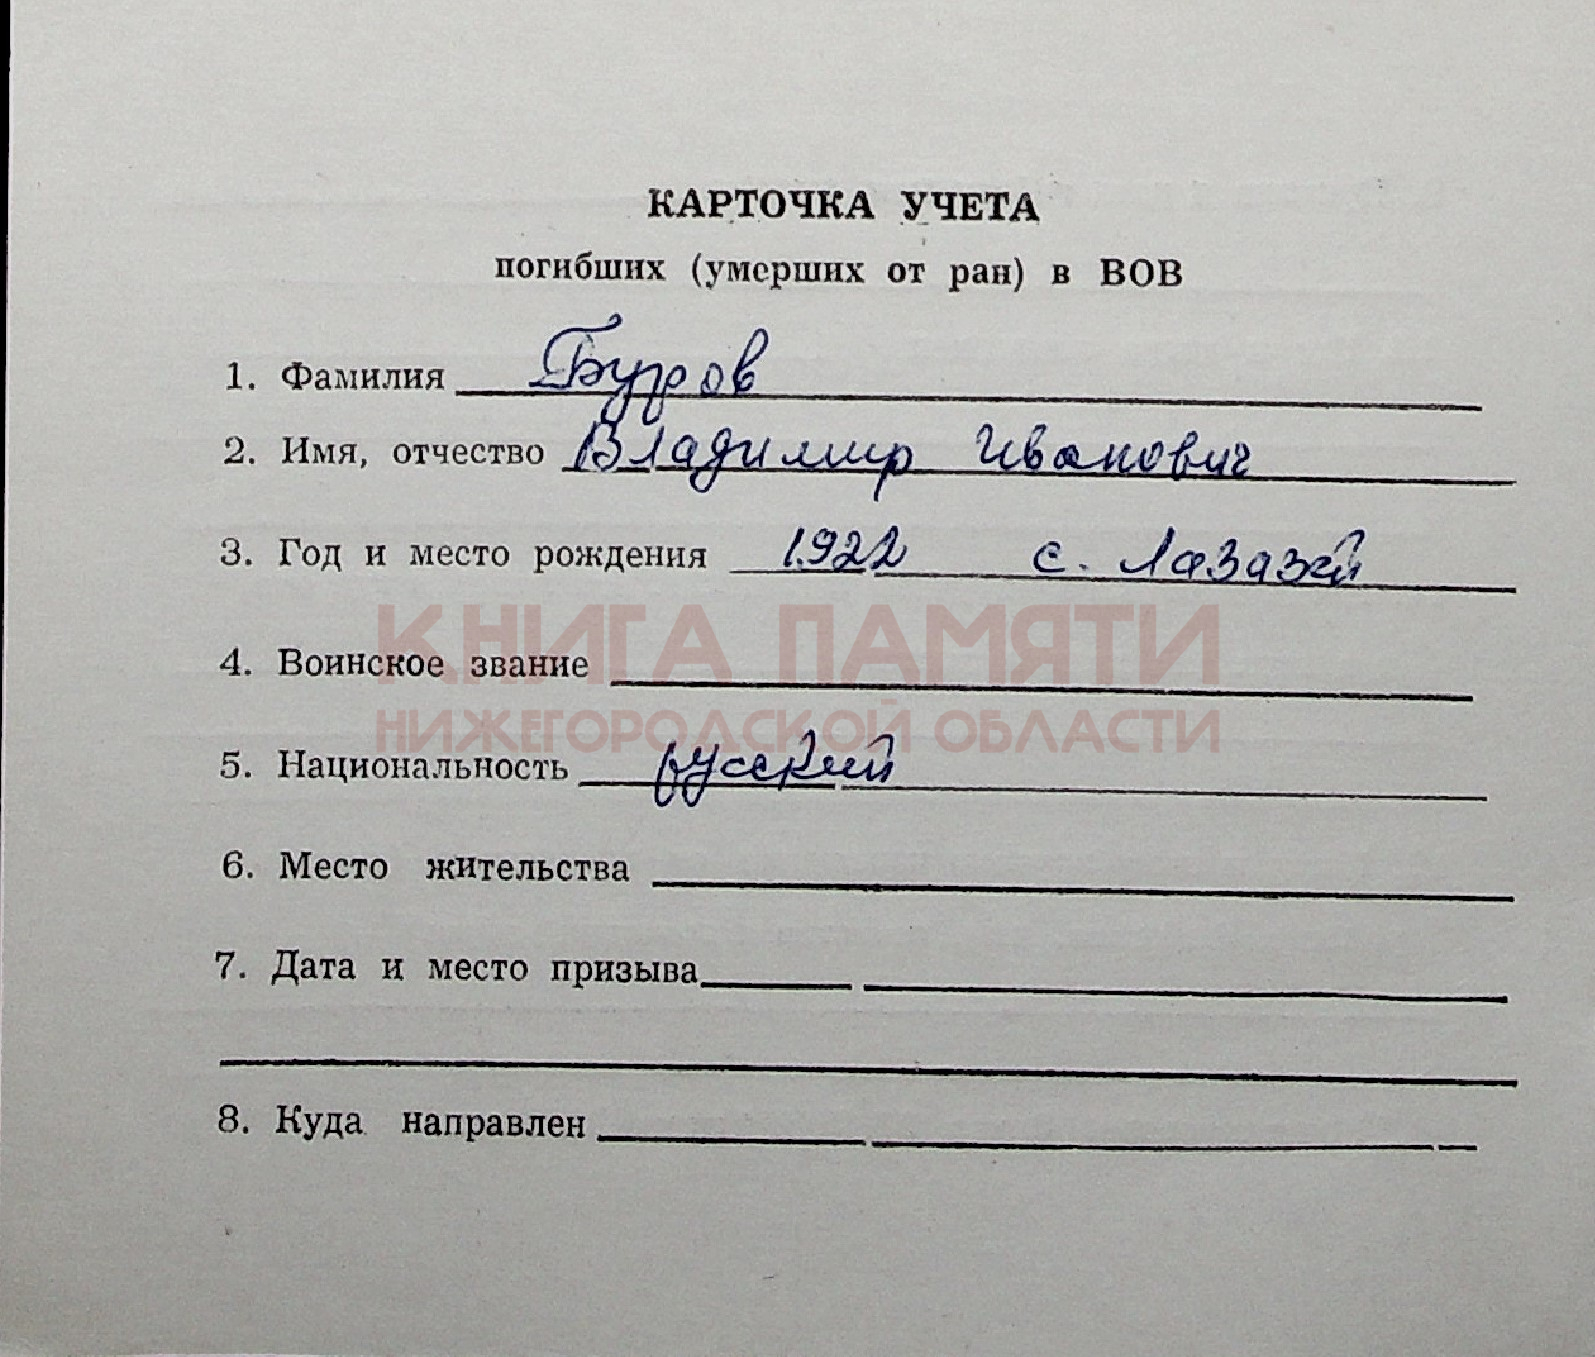 КАРТОЧКА УЧЕТА
погибших (умерших от ран) в ВОВ
1. Фамилия Буров
2. Имя, отчество Владимир Иванович
3. Год и место рождения 1922 с. Лазазей
КНИГА ПАМЯТИ
4. Воинское звание
НИЖЕГОРОДСКОЙ ОБЛАСТИ
5. Национальность русский
6. Место жительства
7. Дата и место призыва
8. Куда направлен